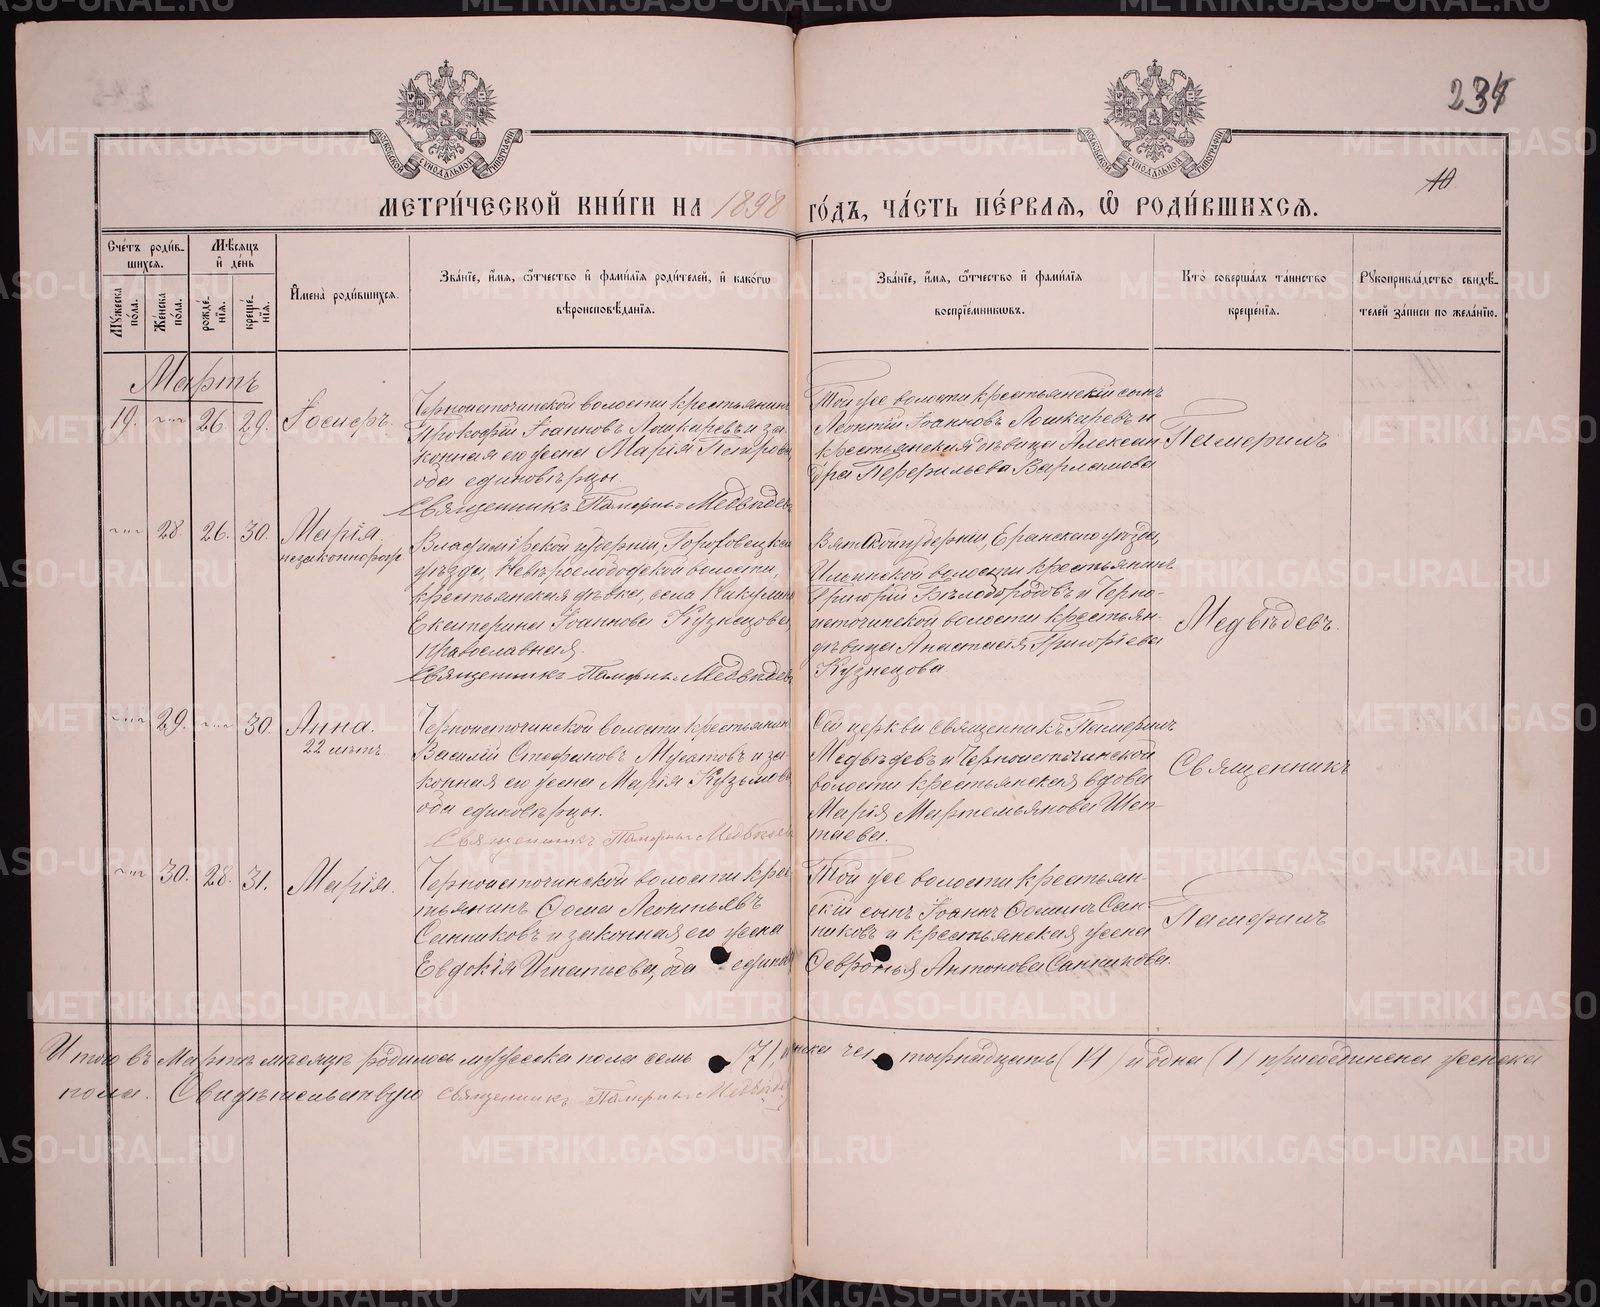 234
10
МЕТРИЧЕСКОЙ КНИГИ НА 1898 ГОДЪ, ЧАСТЬ ПЕРВАЯ, Ѡ РОДИВШИХСЯ.
Счетъ родив-
шихся.
Мужеска
пола.
Женска
пола.
Мѣсяцъ
и день
рожде-
нія.
креще-
нія.
Имена родившихся.
Званіе, имя, ѿтчество и фамилія родителей, и какогѡ
вѣроисповѣданія.
Званіе, имя, ѿтчество и фамилія
воспріемникѡвъ.
Кто совершалъ таинство
крещенія.
Рукоприкладство свидѣ-
телей записи по желанію.
Мартъ
19. 26. 29. Іосифъ.
Черноисточинской волости крестьянинъ
Прокофій Іоанновъ Лошкаревъ и за-
конная его жена Марія Петрова,
оба единовѣрцы.
Священникъ Памфилъ Медвѣдевъ
Той же волости крестьянскій сынъ
Леонтій Іоанновъ Лошкаревъ и
крестьянская дѣвица Алексан
дра Перфильева Варламова
Памфилъ
28. 26. 30. Марія.
незаконнорож
Владимірской губерніи, Гороховецкаго
уѣзда, слободской волости,
крестьянская дѣвка, села Никулина
Екатерина Іоаннова Кузнецова,
православная.
Священникъ Памфилъ Медвѣдевъ
Вятской губерніи, Еранскаго уѣзда,
Ильинской волости крестьянинъ
Григорій Бѣлобородовъ и Черно-
источинской волости крестьян-
дѣвица Анастасія Григоріева
Кузнецова
Медвѣдевъ.
29. 30. Анна.
22 лѣтъ.
Черноисточинской волости крестьянинъ
Василій Стефановъ Мусатовъ и за-
конная его жена Марія Кузьмова
оба единовѣрцы.
Священникъ Памфилъ Медвѣдевъ
Сей церкви священникъ Памфилъ
Медвѣдевъ и Черноисточинской
волости крестьянская вдова
Марія Мартемьянова Шеп-
таева.
Священникъ
30. 28. 31. Марія.
Черноисточинской волости крес
тьянинъ Ѳома Леонтьевъ
Санниковъ и законная его жена
Евдокія Игнатьева, оба единов
Той же волости крестьян-
скій сынъ Іоаннъ Ѳоминъ Сан-
никовъ и крестьянская жена
Февронья Антонова Санникова.
Памфилъ
Итого въ Мартѣ мѣсяцѣ родилось мужеска пола семь (7) женска че тырнадцать (14) и одна (1) присоединена женска
пола. Свидѣтельствую священникъ Памфилъ Медвѣдевъ
METRIKI.GASO-URAL.RU